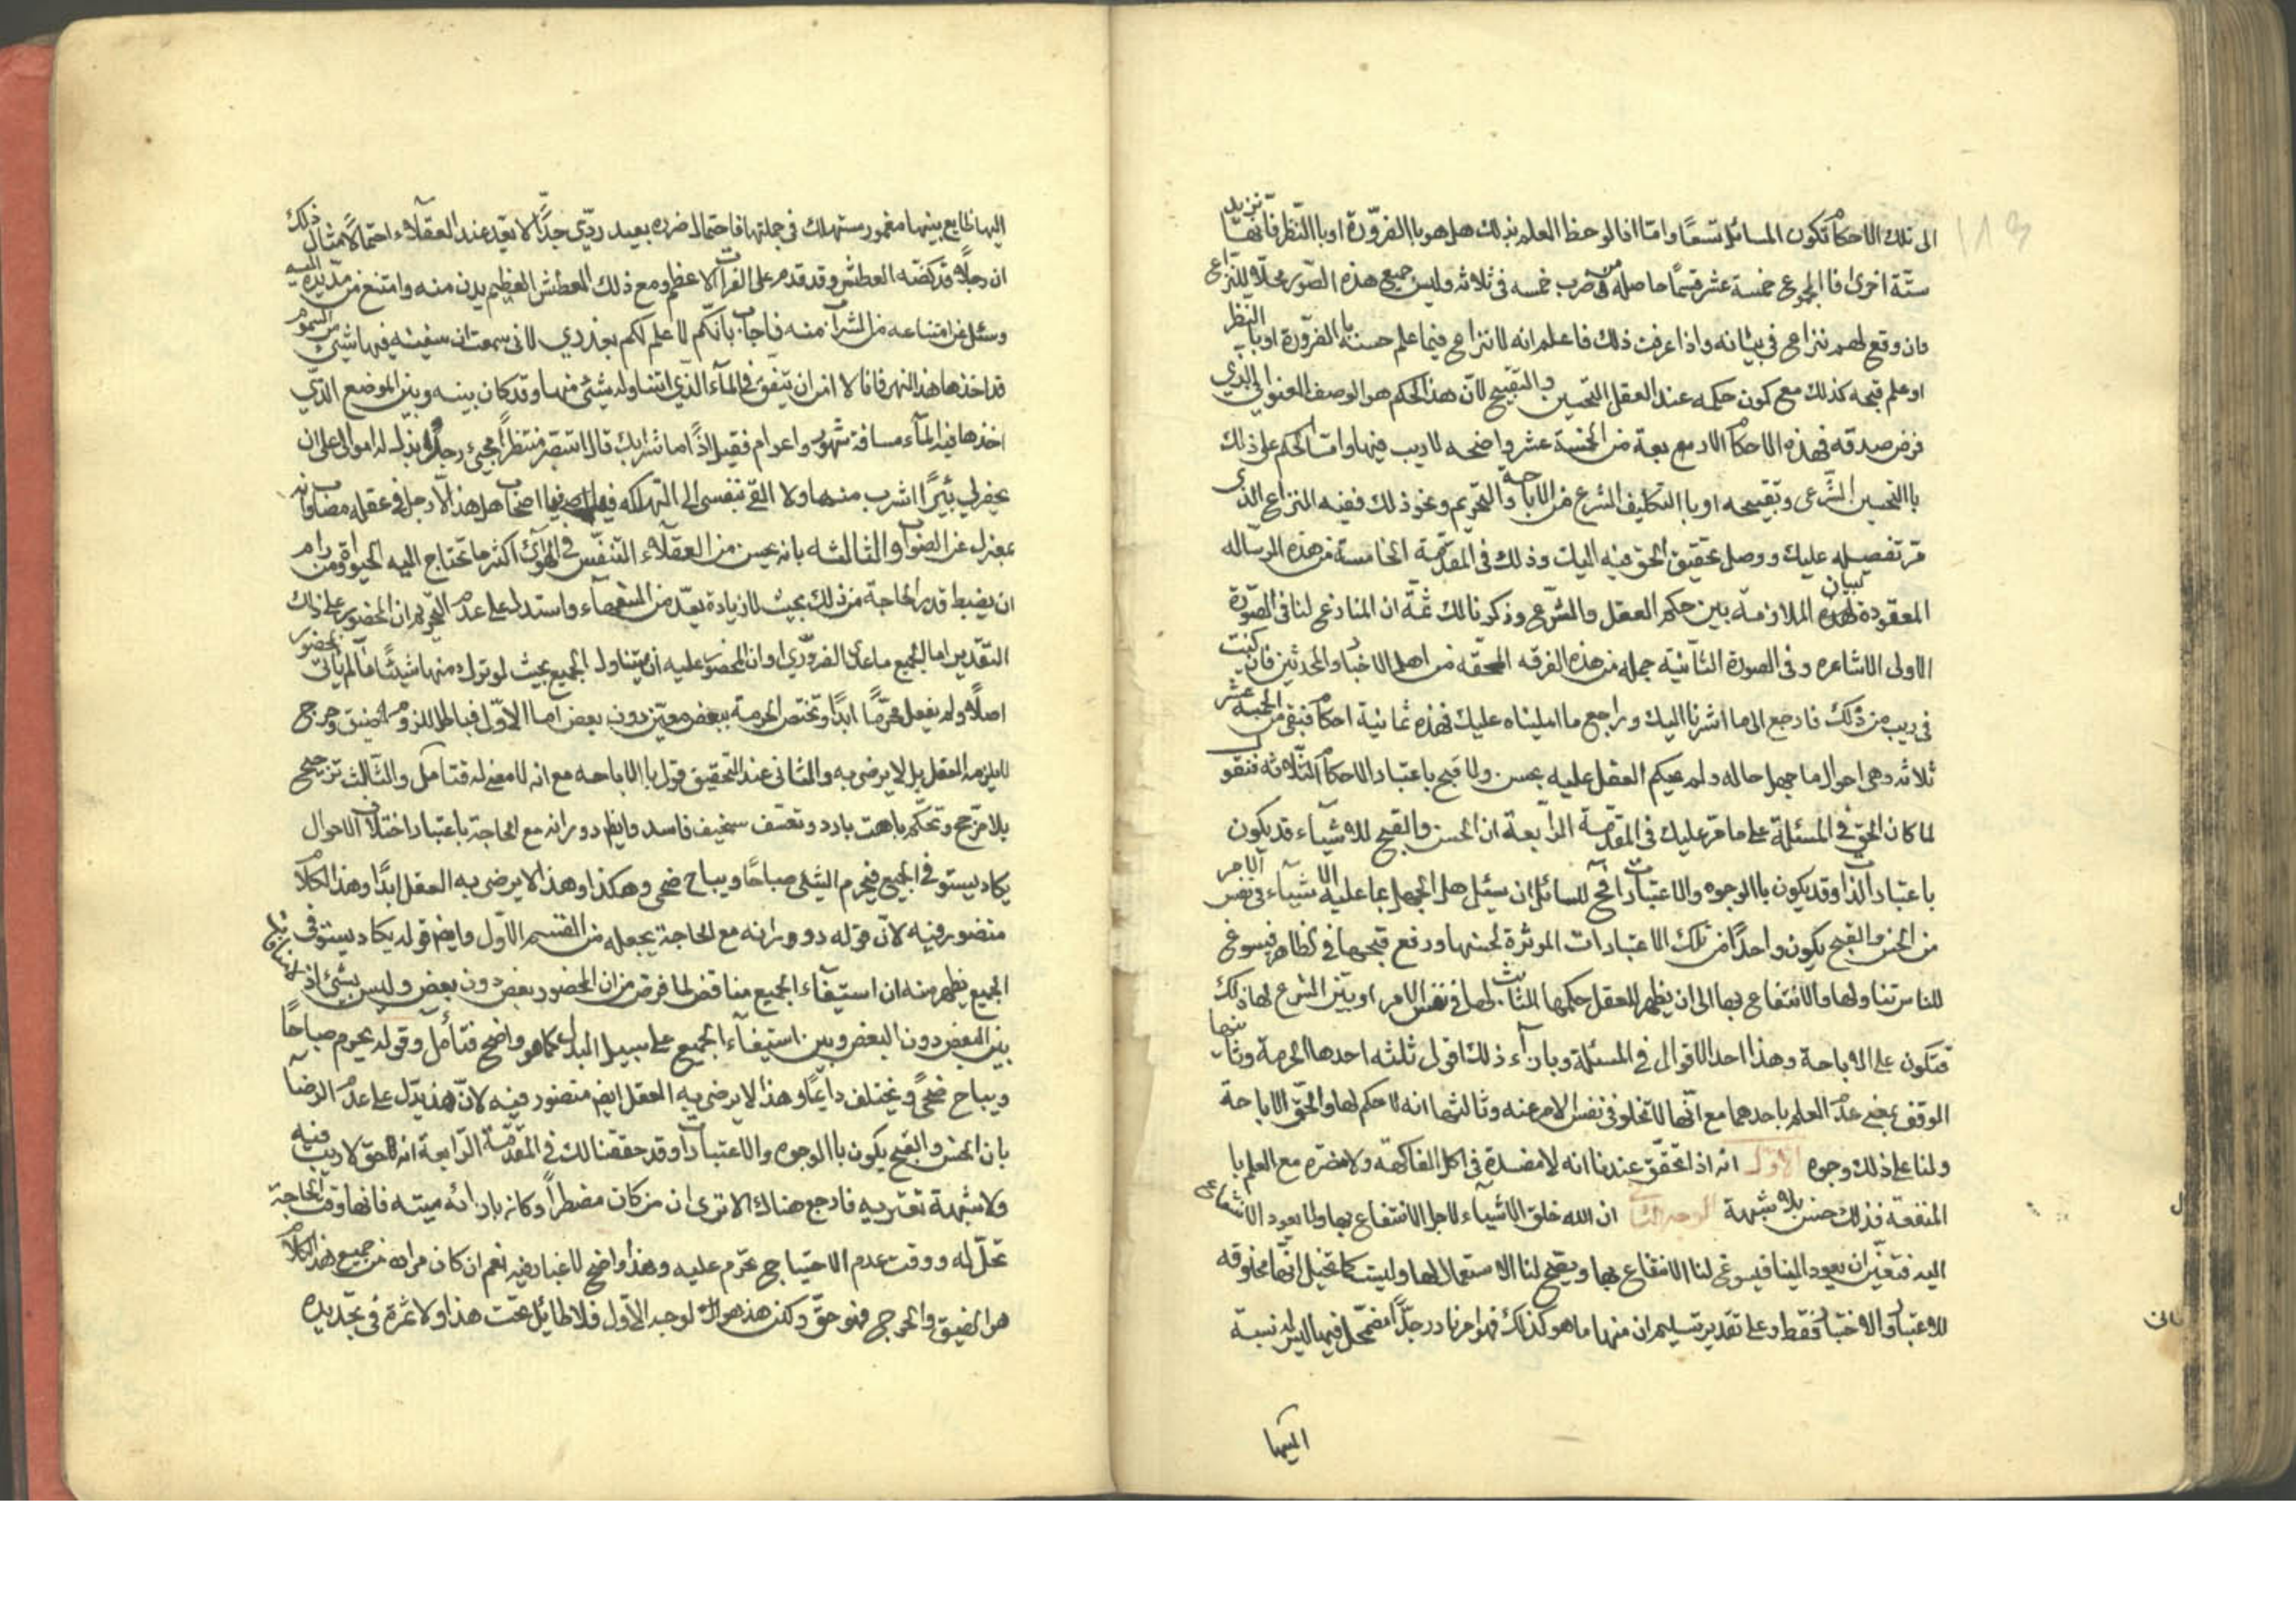 الى تلك الاحكام تكون المسائل تسعًا وامّا اذا لوحظ العلم بذلك هل هو باالضرّورة او باالنّظر فانها تزيد
ستّة اخرى فاالمجموع خمسة عشر قسمًا حاصله من ضرب خمسه في ثلاثه وليس جميع هذه الصّور محلّا للنّزاع
وان وقع لهم نزاع في بيانه واذا عرفت ذلك فاعلم انه لا نزاع فيما علم حسنه باالضرّورة او باالنّظر
او علم قبحه كذلك مع كون حكمه عند العقل التّحسين والتّقبيح لانّ هذا الحكم هو الوصف العنواني الذي
فرض صدقه فهذه الاحكام الاربعة من الخمسة عشر واضحه لا ريب فيها وامّا الحكم على ذلك
باالتحسين الشّرعى وتقبيحه او باالتكليف الشرع من الاباحة والتّحريم ونحو ذلك ففيه النزاع الذى
مرّ تفصيله عليك ووصل تحقيق الحق فيه اليك وذلك في المقدّمة الخامسة من هذه الرساله
المعقودة لبيان الملازمة بين حكم العقل والشّرع وذكرنا لك ثمّة ان المنازع لنا في الصّورة
الاولى الاشاعره وفي الصورة الثانية جمله من هذه الفرقه المحقّه من اهل الاخبار والمحدثين فان كنت
في ريب من ذلك فارجع الى ما اشرنا اليك وراجع ما امليناه عليك فهذه ثمانية احكام فبقى من الخمسة عشر
ثلاثه وهى احوال ما جهل حاله ولم يحكم العقل عليه بحسن ولا قبح باعتبار الاحكام الثّلاثه فنقول
لما كان الحقّ في المسئلة على ما مرّ عليك في المقدّمة الرّابعة ان الحسن والقبح للاشيآء قد يكون
باعتبار الذات وقد يكون باالوجوه والاعتبارات فح للسائل ان يسئل هل الجهل بما عليه الاشيآء في نفس الامر
من الحسن والقبح يكون واحدًا من تلك الاعتبارات الموثرة لحسنها ورفع قبحها في الظاهر فيسوغ
للناس تناولها والانتفاع بها الى ان يظهر للعقل حكمها الثابت لها في نفس الامر او يبيّن الشرع لها ذلك
فتكون على الاباحة وهذا احد الاقوال في المسئلة وبازآء ذلك اقوال ثلثه احدها الحرمة وثانيها
الوقف بمعنى عدم العلم باحدهما مع انّها لا تخلو في نفس الامر عنه وثالثها انه لا حكم لها والحقّ الاباحة
ولنا على ذلك وجوه الاوّل انه اذا تحقّق عندنا انه لا مفسدة في اكل الفاكهة ولا مضرّه مع العلم با
المنفعة فذلك حسن بلا شبهة الوجه الثانى ان الله خلق الاشيآء لاجل الانتفاع بها ولا يعود الانتفاع
اليه فتعيّن ان يعود الينا فيسوغ لنا الانتفاع بها ويقبح لنا الاستعمال لها وليست كما تخيّل انّها مخلوقه
للاعتبار والاختبار فقط وعلى تقدير تسليم ان منها ما هو كذلك فهو امر نادر جدًّا مضمحّل فيما ليس له نسبة
اليها
اليها ظايع بينها مغمور مستهلك في جملتها فاحتمال ضرره بعيد ردّي جدًّا لا يعّد عند العقلآء احتمالًا مثال ذلك
ان رجلًا قد كضّه العطش وقد قدم على الفرات الاعظم ومع ذلك العطش العظيم يدن منه وامتنع من مدّ يده اليه
وسئل عن امتناعه من الشراب منه فاجاب بانّكم لا علم لكم بعذري لانى سمعت ان سفينه فيها شيئ من السموم
قد اخذها هذا النهر فانا لا امن ان يتفق في المآء الذي اتناوله شيئ منها وقد كان بينه وبين الموضع الذّي
اخذها فيه المآء مسافة شهور واعوام فقيل اذًا ما شرابك قال انتصر منتظرًا مجيئ رجل بذلت له اموالى على ان
يحفر لي بئيرًا اشرب منها ولا القي بنفسي الى التهلاكه هل هذا الّا رجل في عقله مضاب وانه
بمعزل عن الصواب والثالثه بانه يحسن من العقلآء التنفّس في الهوآء اكثر ما تحتاج اليه الحيوة ومن رام
ان يضبط قدر الحاجة من ذلك بحيث لا زيادة يعدّ من السّفهآء واستدل على عدم التّحريم ان المحضور على ذلك
التقدير اما الجميع ما عدى الضروّري او ان المحضور عليه ان يتناول الجميع بحيث لو ترك منها شيئًا ما لم ياتى بمحضور
اصلًا ولم يفعل محرّمًا ابدًا وتختص الحرمة ببعض معيّن دون بعض اما الاوّل فباطل للزوم ضيق وحرج
لا يلزمه العقل بل لا يرضى به والثانى عند التّحقيق قول باالاباحه مع انه لا معنى له فتامّل والثّالث ترجيح
بلا مرّجح وتحكّم باهت بارد وتعسّف سخيف فاسد وايظم دورانه مع الحاجة باعتبار اختلاف الاحوال
يكاد يستوفي الجميع فيحرم الشئى صباحًا ويباح ضحى وهكذا وهذا لا يرضى به العقل ابدًا وهذا الكلام
منضور فيه لانّ قوله دورانه مع الحاجة يجعله من القسم الاوّل وايضم قوله يكاد يستوفي
الجميع يظهر منه ان استيفآء الجميع مناقض لما فرض من ان المحضور بعض دون بعض وليس بشئ اذ لا منافاة
بين البعض دون البعض وبين استيفآء الجميع على سبيل البدل كما هو واضح فتأمل وقوله يحرم صباحًا
ويباح ضحىً ويختلف دايمًا وهذا لا يرضى به العقل ايضم منضور فيه لانّ هذا يدّل على عدم الرضآ
بان الحسن والقبح يكون باالوجوه والاعتبارات وقد حققنا لك في المقدّمة الرّابعة انه الحق لا ريب فيه
ولا شبهة تعتريه فارجع هناك الا ترى ان من كان مضطرًا وكان بازائه ميته فانها وقت الحاجة
تحلّ له ووقت عدم الاحتياج تحرّم عليه وهذا واضح لا غبار فيه نعم ان كان مراده من جميع هذا الكلام
هو الضيق والحرج فهو حقّ ولكن هذا هو الوجه الاوّل فلا طائل تحت هذا ولا ثمرة في تجديده